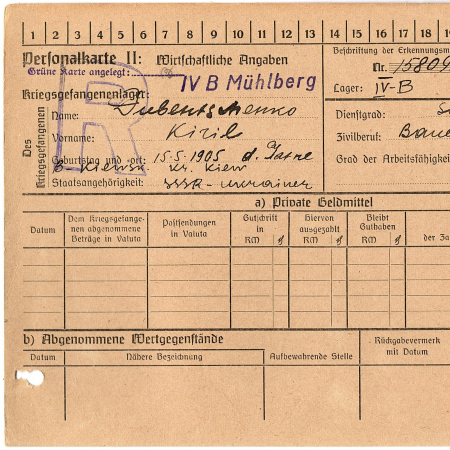 1 2 3 4 5 6 7 8 9 10 11 12 13 14 15 16 17 18 19
Personalkarte II: Wirtschaftliche Angaben
Beschriftung der Erkennungsm
Grüne Karte angelegt:
Nr. 15809
IV B Mühlberg
Kriegsgefangenenlager:
Lager: IV-B
Des Kriegsgefangenen
Name: Dubentschenko
Dienstgrad: S
Vorname: Kiril
Zivilberuf: Baue
Geburtstag und -ort: 15.5.1905 d.
Grad der Arbeitsfähigkei
Kr. Kiew
Staatsangehörigkeit: SSSR - Ukrainer
a) Private Geldmittel
Datum
Dem Kriegsgefange-
nen abgenommene
Beträge in Valuta
Postsendungen
in Valuta
Gutschrift
in
RM ₰
Hiervon
ausgezahlt
RM ₰
Bleibt
Guthaben
RM ₰
der Za
b) Abgenommene Wertgegenstände
Rückgabevermerk
mit Datum
Datum Nähere Bezeichnung Aufbewahrende Stelle